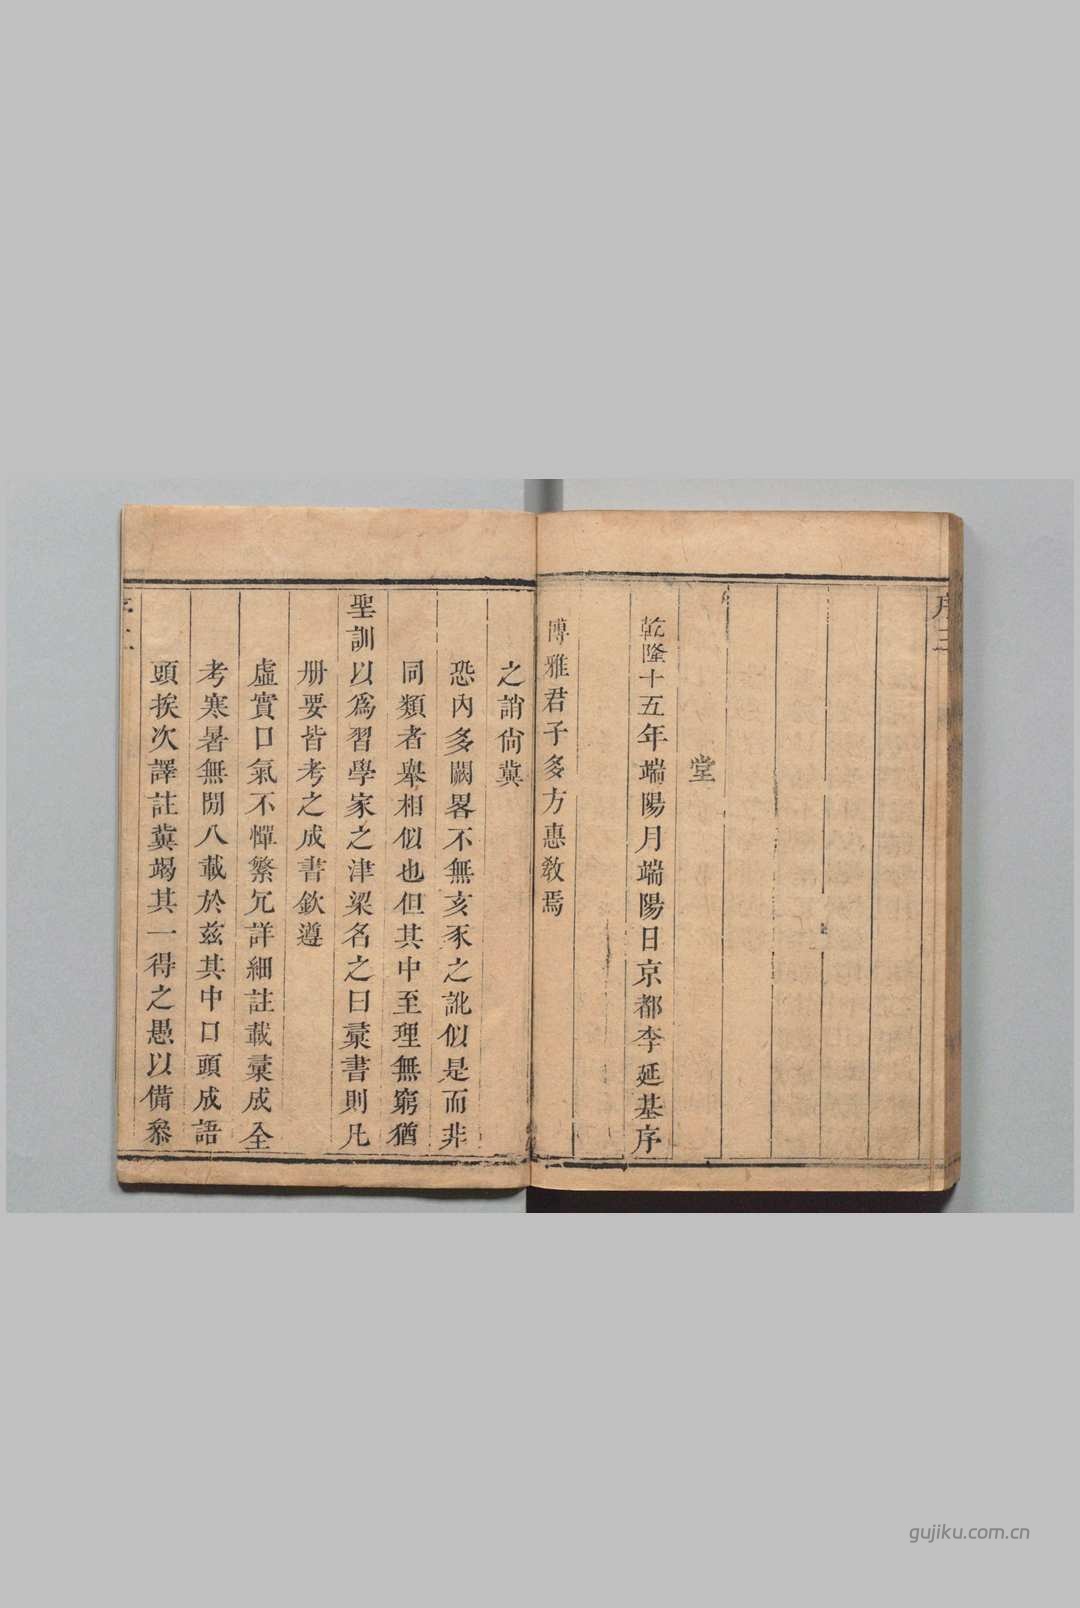 頭挨次譯註冀竭其一得之愚以備叅
考寒暑無閒八載於茲其中口頭成語
虛實口氣不憚繁冗詳細註載彙成全
册要皆考之成書欽遵
聖訓以爲習學家之津梁名之曰彙書則凡
同類者舉相似也但其中至理無窮猶
恐內多闕畧不無亥豕之訛似是而非
之誚尙冀
博雅君子多方惠敎焉
乾隆十五年端陽月端陽日京都李延基序
堂
序三
gujiku.com.cn